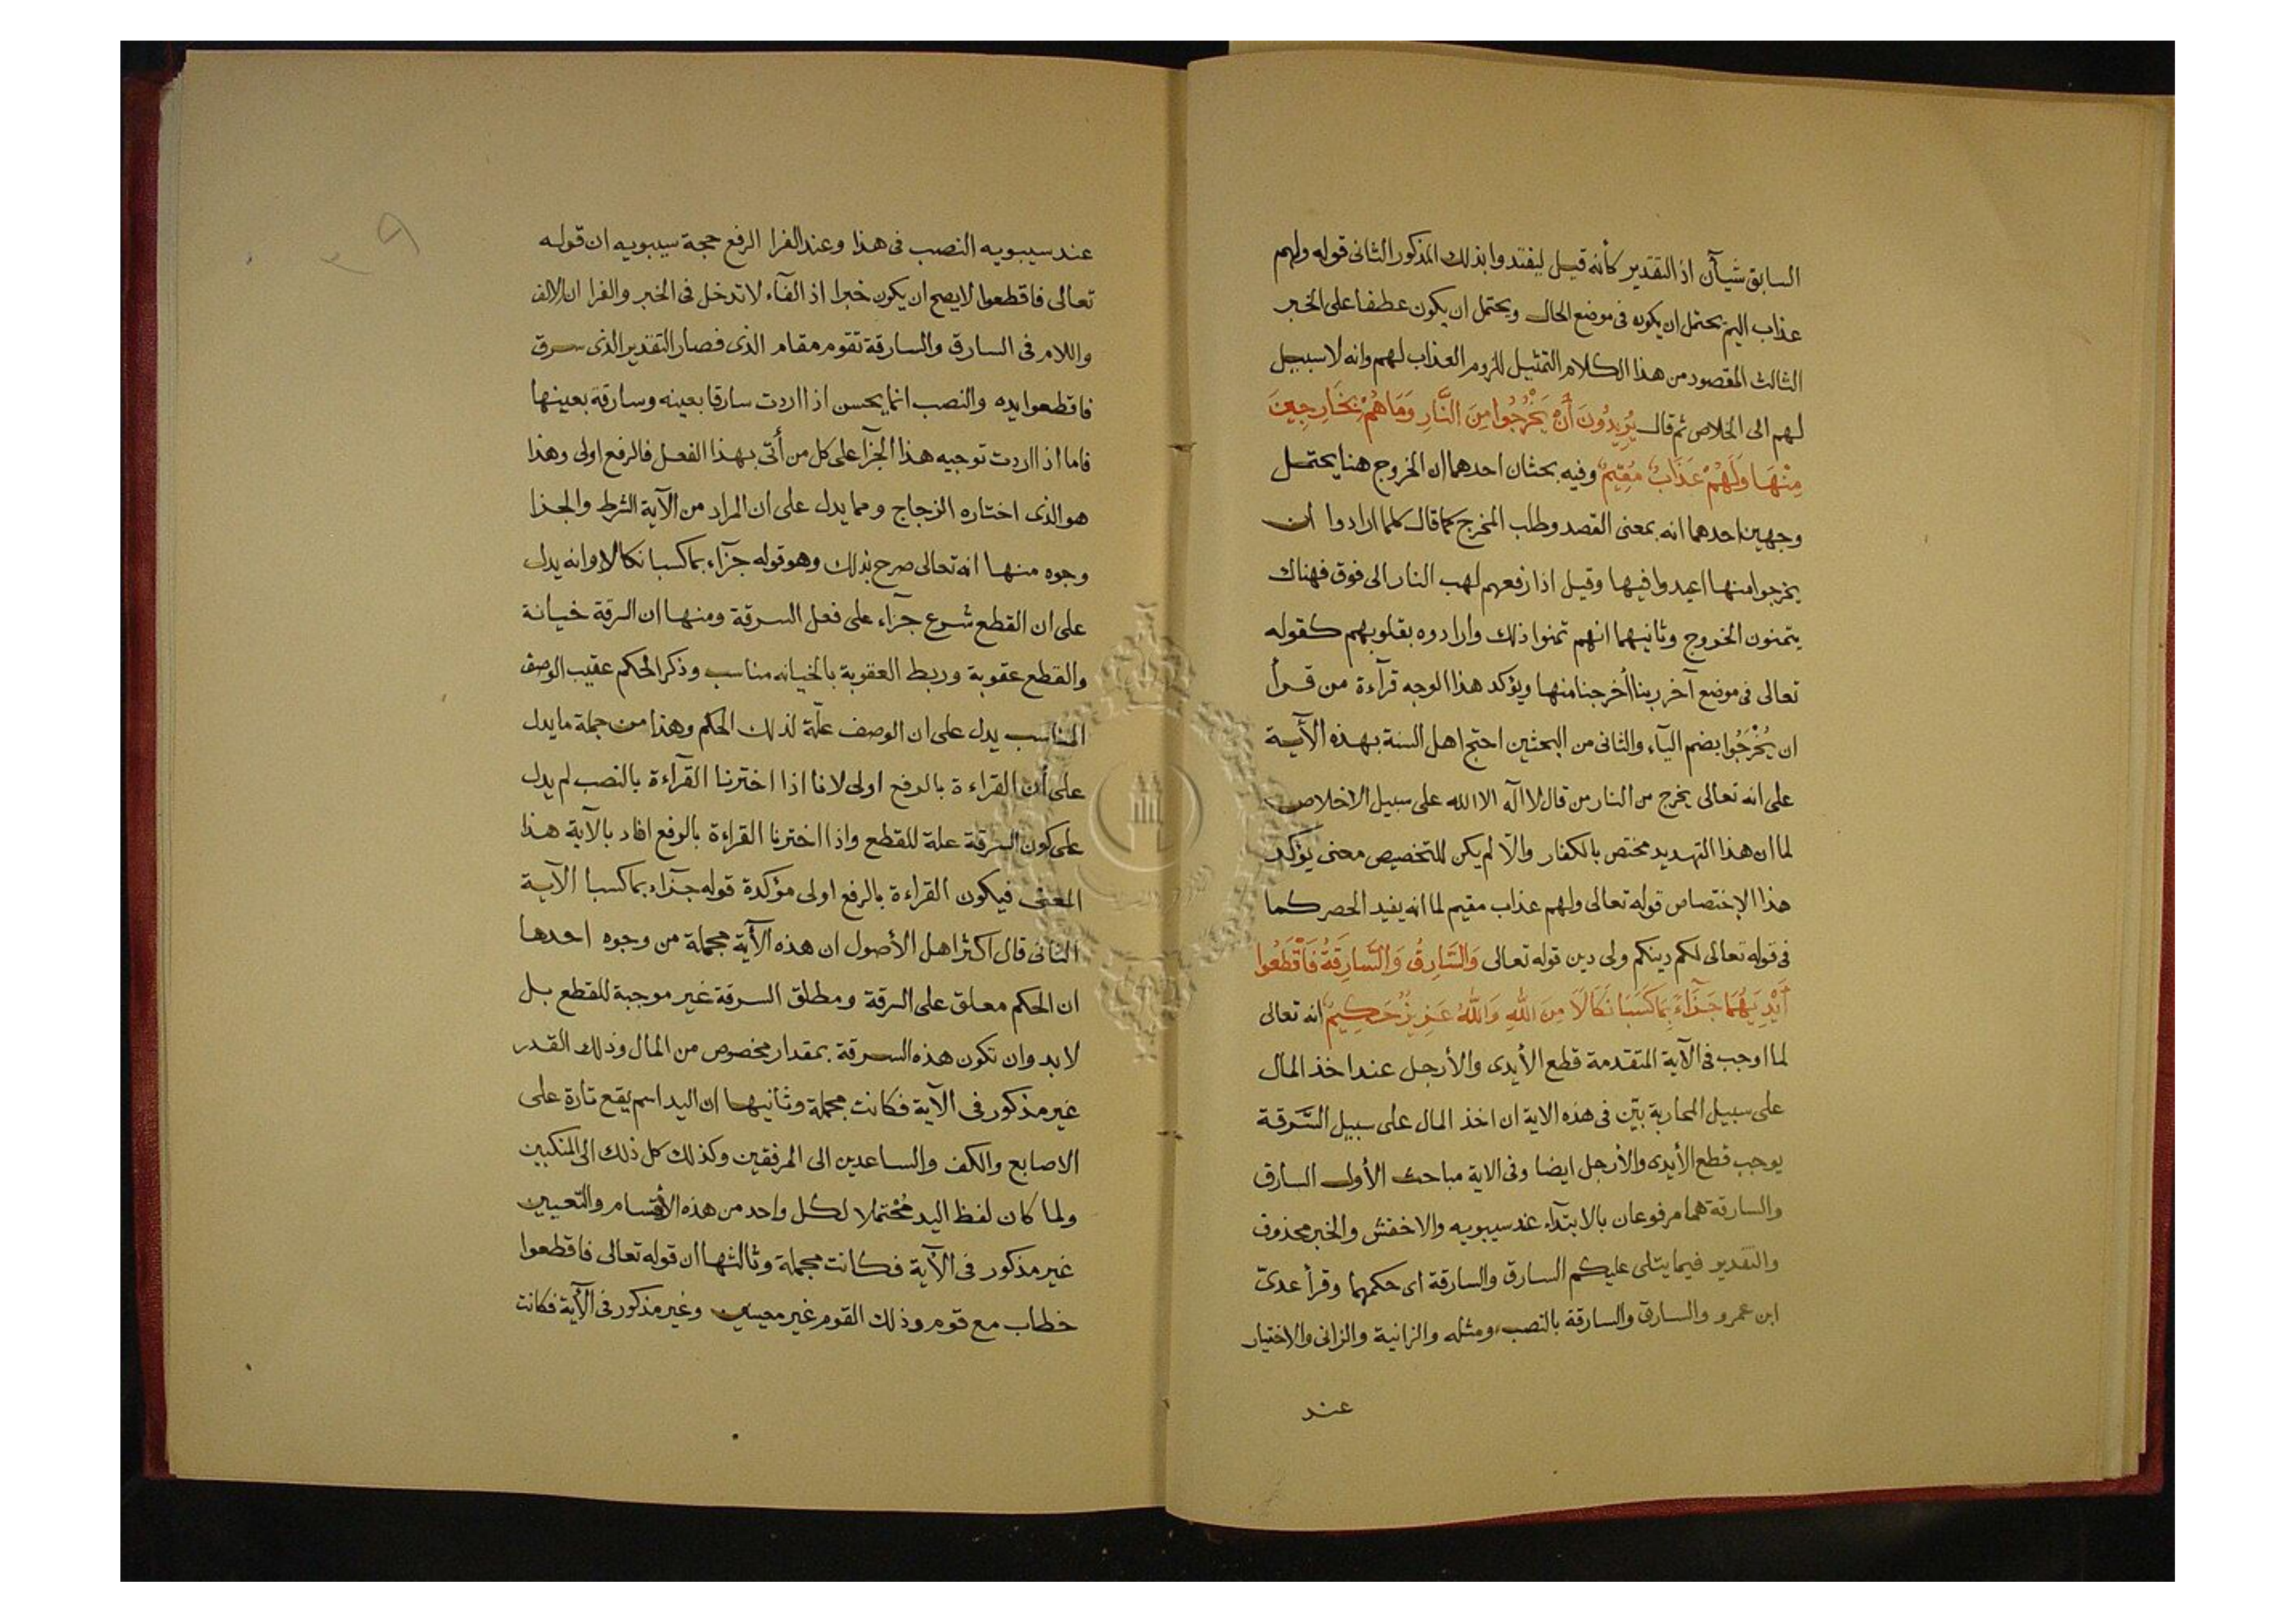 السابق شيآن اذ التقدير كأنه قيل ليفتدوا بذلك المذكور الثانى قوله ولهم
عذاب اليم يحتمل ان يكون فى موضع الحال ويحتمل ان يكون عطفا على الخبر
الثالث المقصود من هذا الكلام التمثيل للزوم العذاب لهم وانه لا سبيل
لهم الى الخلاص ثم قال يُرِيدُونَ أَنْ يَخْرُجُوا مِنَ النَّارِ وَمَا هُمْ بِخَارِجِينَ
مِنْهَا وَلَهُمْ عَذَابٌ مُقِيمٌ وفيه بحثان احدهما ان الخروج هنا يحتمل
وجهين احدهما انه بمعنى القصد وطلب المخرج كما قال كلما ارادوا ان
يخرجوا منها اعيدوا فيها وقيل اذا رفعهم لهب النار الى فوق فهناك
يتمنون الخروج وثانيهما انهم تمنوا ذلك وارادوه بقلوبهم كقوله
تعالى فى موضع آخر ربنا أخرجنا منها ويؤكد هذا الوجه قرآءة من قرأ
ان يُخْرَجُوا بضم اليآء والثانى من البحثين احتج اهل السنة بهذه الآية
على انه تعالى يخرج من النار من قال لا اله الا الله على سبيل الاخلاص
لما ان هذا التهديد مختص بالكفار والا لم يكن للتخصيص معنى يؤكد
هذا الإختصاص قوله تعالى ولهم عذاب مقيم لما انه يفيد الحصر كما
فى قوله تعالى لكم دينكم ولى دين قوله تعالى وَالسَّارِقُ وَالسَّارِقَةُ فَاقْطَعُوا
أَيْدِيَهُمَا جَزَآءً بِمَا كَسَبَا نَكَالًا مِنَ اللهِ وَاللهُ عَزِيزٌ حَكِيمٌ انه تعالى
لما اوجب فى الآية المتقدمة قطع الأيدى والأرجل عند اخذ المال
على سبيل المحاربة بيّن فى هذه الاية ان اخذ المال على سبيل السَّرقة
يوجب قطع الأيدى والأرجل ايضا وفى الاية مباحث الأول السارق
والسارقة هما مرفوعان بالابتدآء عند سيبويه والاخفش والخبر محذوف
والتقدير فيما يتلى عليكم السارق والسارقة اى حكمهما وقرأ عدىّ
ابن عمرو والسارق والسارقة بالنصب ومثله والزانية والزانى والاختيار
عند
عند سيبويه النصب فى هذا وعند الفرا الرفع حجة سيبويه ان قوله
تعالى فاقطعوا لا يصح ان يكون خبرا اذ الفآء لا تدخل فى الخبر والفرا ان الالف
واللام فى السارق والسارقة تقوم مقام الذى فصار التقدير الذى سرق
فاقطعوا يده والنصب انما يحسن اذا اردت سارقا بعينه وسارقة بعينها
فاما اذا اردت توجيه هذا الجزآ على كل من أتى بهذا الفعل فالرفع اولى وهذا
هو الذى اختاره الزجاج ومما يدل على ان المراد من الآية الشرط والجزا
وجوه منها انه تعالى صرح بذلك وهو قوله جزآء بما كسبا نكالا وانه يدل
على ان القطع شرع جزآء على فعل السرقة ومنها ان السرقة خيانة
والقطع عقوبة وربط العقوبة بالخيانه مناسب وذكر الحكم عقيب الوصف
المناسب يدل على ان الوصف علّة لذلك الحكم وهذا من جملة ما يدل
على أن القراءة بالرفع اولى لانا اذا اخترنا القرآءة بالنصب لم يدل
على كون السرقة علة للقطع واذا اخترنا القراءة بالرفع افاد بالآية هذا
المعنى فيكون القراءة بالرفع اولى مؤكدة قوله جزآء بما كسبا الآية
الثانى قال اكثر اهل الأصول ان هذه الآية مجملة من وجوه احدها
ان الحكم معلق على السرقة ومطلق السرقة غير موجبة للقطع بل
لا بد وان تكون هذه السرقة بمقدار مخصوص من المال وذلك القدر
غير مذكور فى الآية فكانت مجملة وثانيها ان اليد اسم يقع تارة على
الاصابع والكف والساعدين الى المرفقين وكذلك كل ذلك الى المنكبين
ولما كان لفظ اليد مُحْتملا لكل واحد من هذه الأقسام والتّعيين
غير مذكور فى الآية فكانت مجملة وثالثها ان قوله تعالى فاقطعوا
خطاب مع قوم وذلك القوم غير معيين وغير مذكور فى الآية فكانت